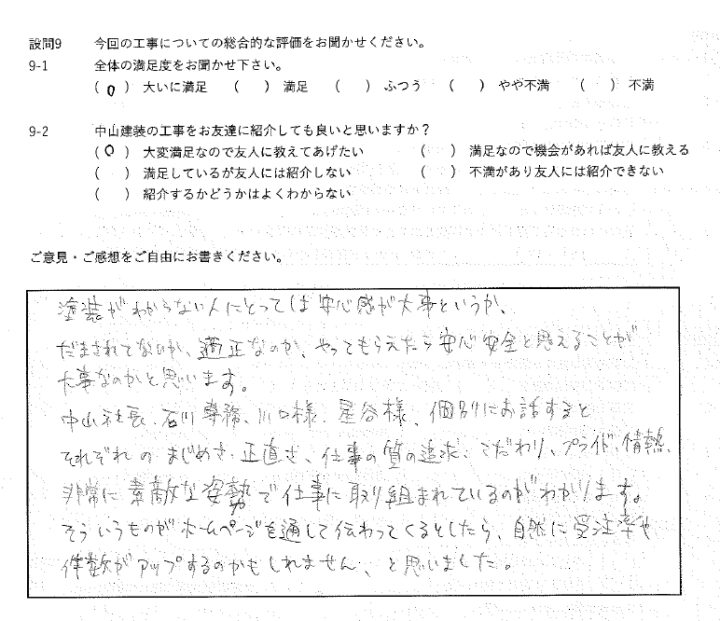 設問9 今回の工事についての総合的な評価をお聞かせください。
9-1 全体の満足度をお聞かせ下さい。
(O) 大いに満足 ( ) 満足 ( ) ふつう ( ) やや不満 ( ) 不満
9-2 中山建装の工事をお友達に紹介しても良いと思いますか？
(O) 大変満足なので友人に教えてあげたい ( ) 満足なので機会があれば友人に教える
( ) 満足しているが友人には紹介しない ( ) 不満があり友人には紹介できない
( ) 紹介するかどうかはよくわからない
ご意見・ご感想をご自由にお書きください。
塗装がわからない人にとっては安心感が大事というか、
だまされてないか、適正なのか、やってもらえたら安心安全と思えることが
大事なのかと思います。
中山社長、石川専務、川口様、屋谷様、個別にお話すると
それぞれのまじめさ・正直さ、仕事の質の追求、こだわり、プライド、情熱、
非常に素敵な姿勢で仕事に取り組まれているのがわかります。
そういうものがホームページを通して伝わってくるとしたら、自然に受注率や
件数がアップするのかもしれません、と思いました。